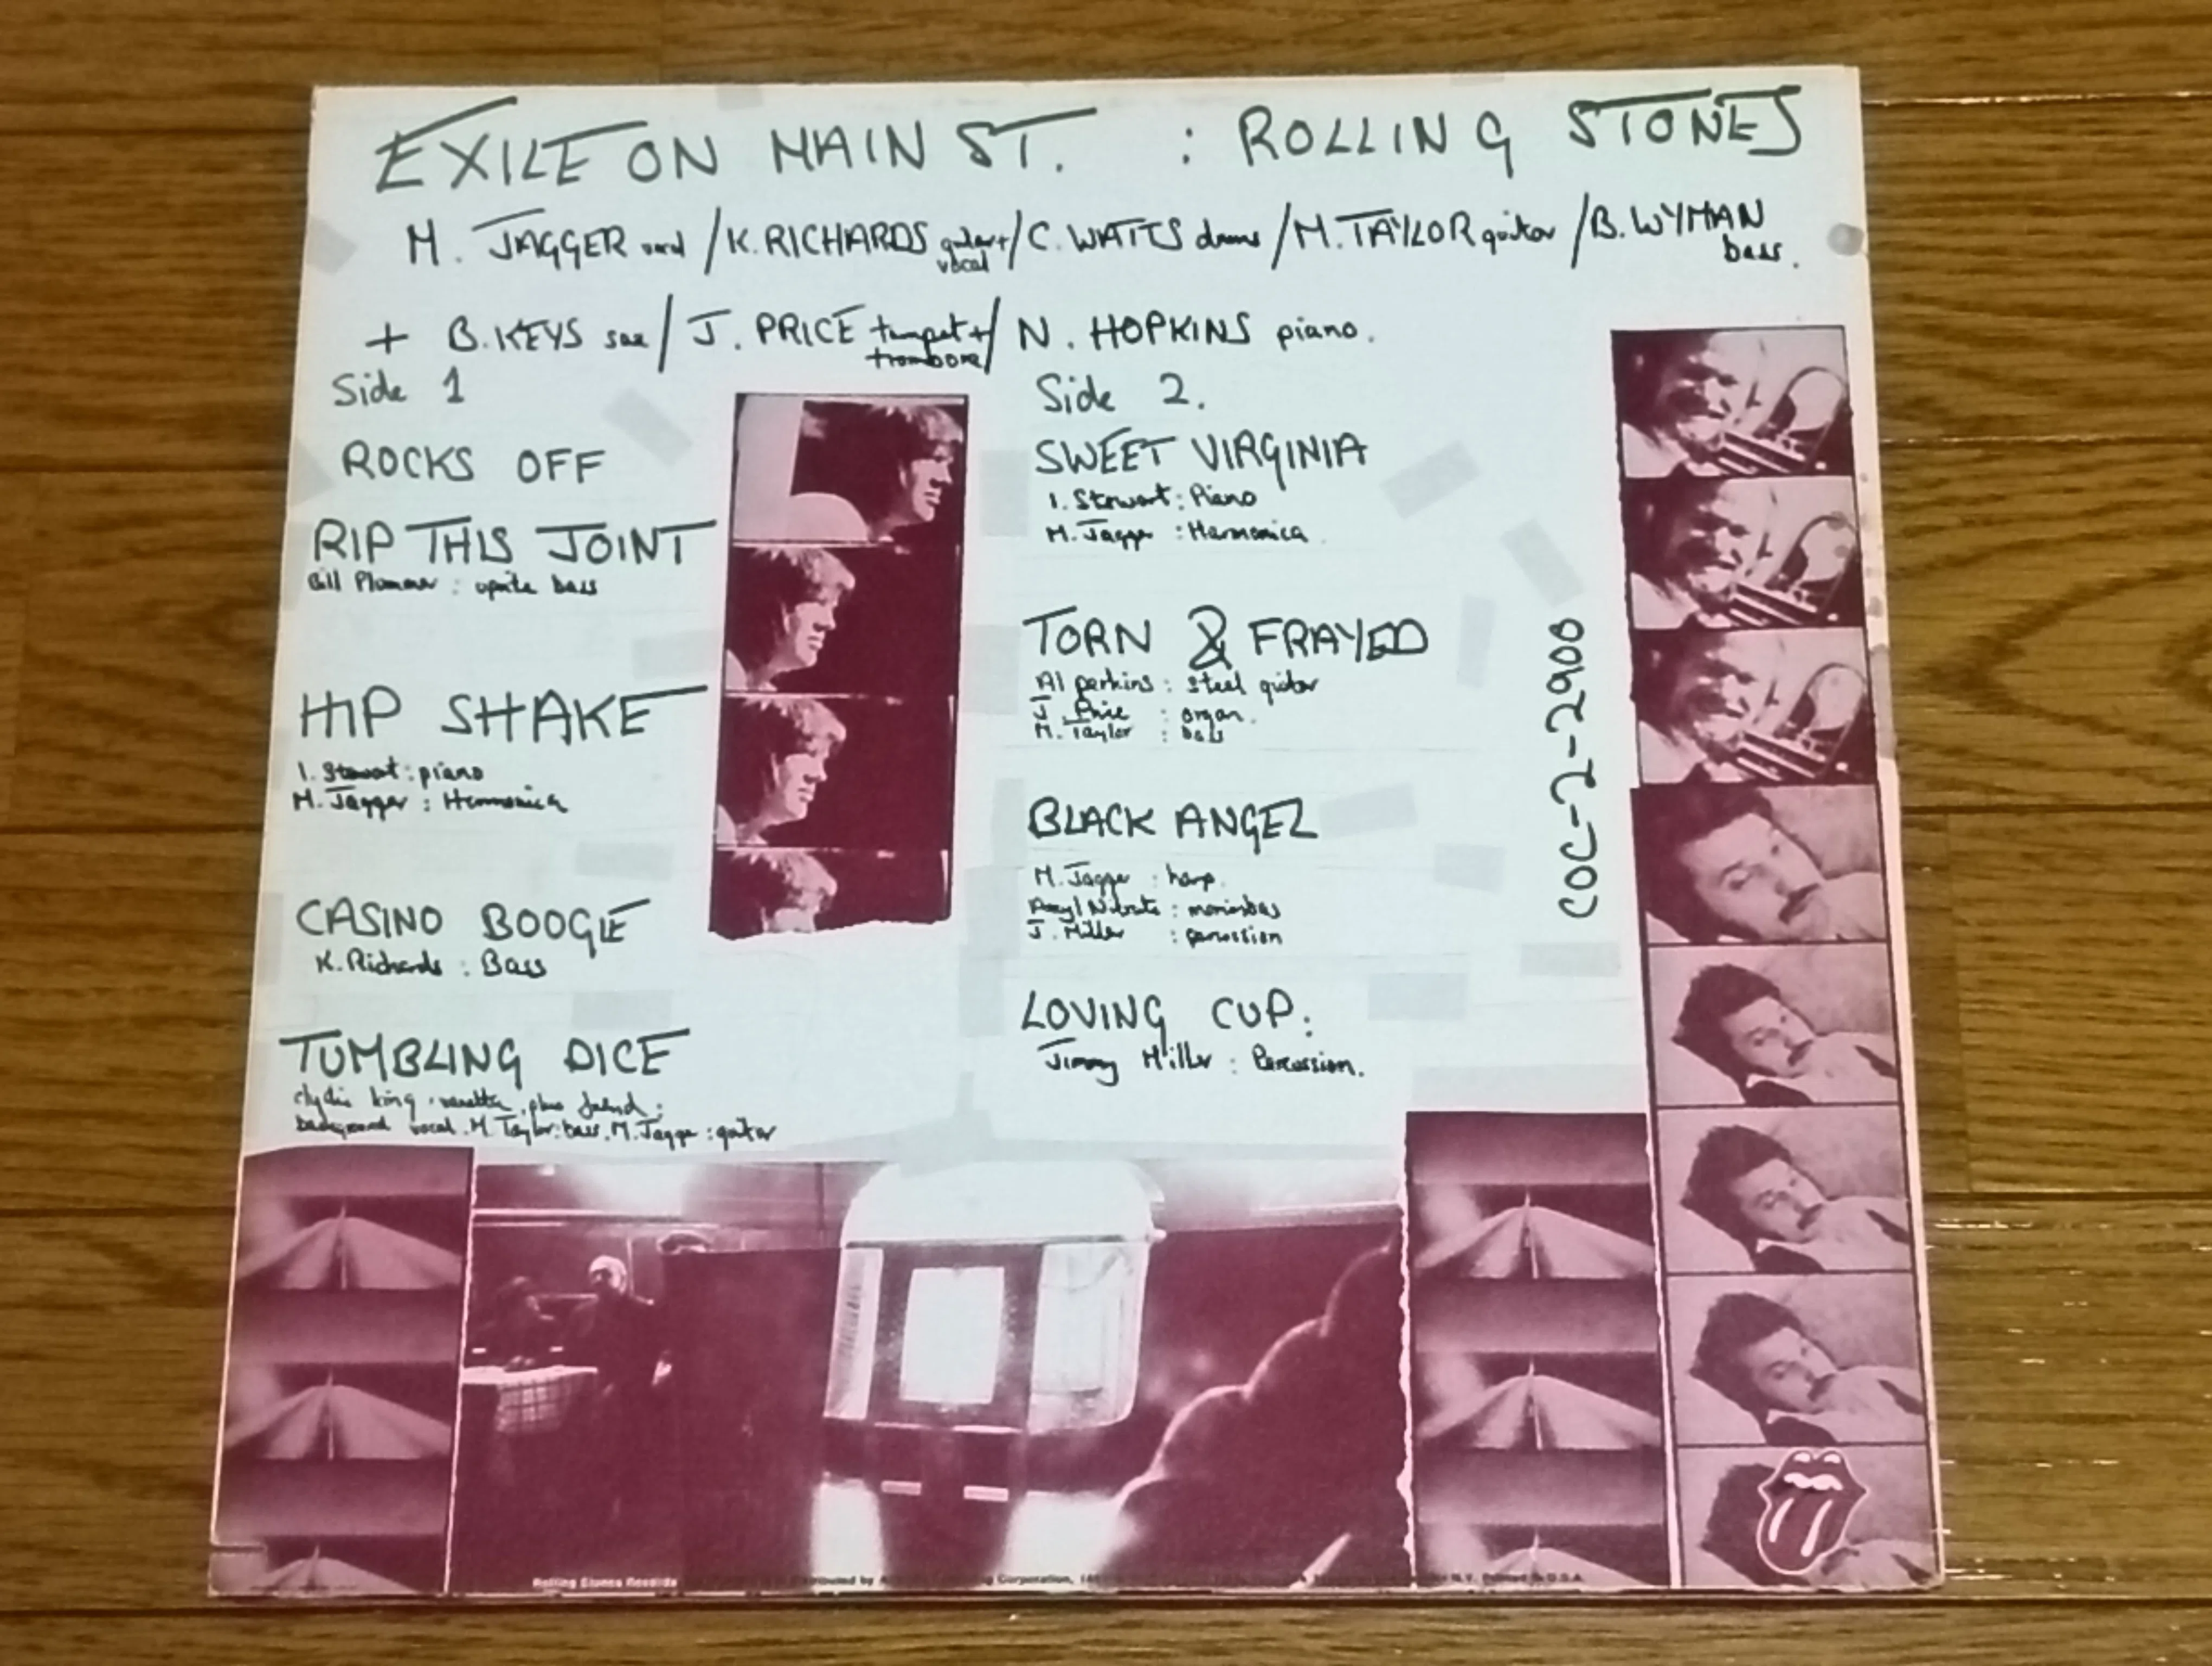 EXILE ON MAIN ST. : ROLLING STONES
M. JAGGER vocal / K. RICHARDS guitar + vocal / C. WATTS drums / M. TAYLOR guitar / B. WYMAN bass.
+ B. KEYS sax / J. PRICE trumpet + trombone / N. HOPKINS piano.
Side 1
ROCKS OFF
RIP THIS JOINT
Bill Plummer : uprite bass
HIP SHAKE
I. Stewart : piano
M. Jagger : Harmonica
CASINO BOOGIE
K. Richards : Bass
TUMBLING DICE
clydie king . vanetta . plus friend :
background vocal . M. Taylor : bass . M. Jagger : guitar
Side 2.
SWEET VIRGINIA
I. Stewart : Piano
M. Jagger : Harmonica
TORN & FRAYED
Al perkins : steel guitar
J. Price : organ.
M. Taylor : bass
BLACK ANGEL
M. Jagger : harp.
Amyl Nitrate : marimbas
J. Miller : percussion
LOVING CUP :
Jimmy Miller : Percussion.
COC-2-2900
Rolling Stones Records
Corporation,
Printed in U.S.A.